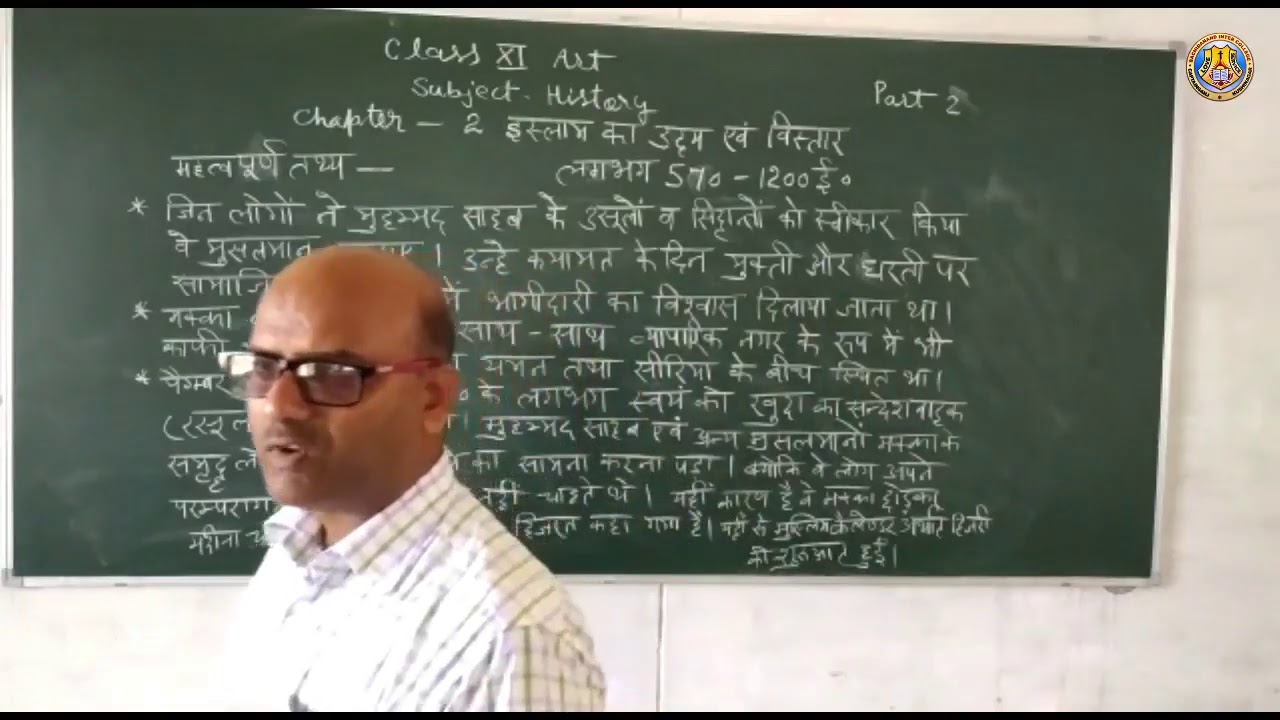 Class XI Art
Subject - History
Part 2
Chapter - 2 इस्लाम का उदय एवं विस्तार
महत्वपूर्ण तथ्य — लगभग 570 - 1200 ई०
* जिन लोगों ने मुहम्मद साहब के उसूलों व सिद्दान्तों को स्वीकार किया
वे मुसलमान । उन्हे कयामत के दिन मुक्ती और धरती पर
सामाजि में भागीदारी का विश्वास दिलाया जाता था।
* मक्का साथ - साथ व्यापारिक नगर के रूप में भी
काफी यमन तथा सीरिया के बीच स्थित था।
* पैगम्बर के लगभग स्वयं को खुदा का सन्देशवाहक
(रसूल मुहम्मद साहब एवं अन्य मुसलमानों मक्का के
समृद्ध का सामना करना पड़ा। क्योकि वे लोग अपने
परम्पराग नहीं चाहते थे। यहीं कारण है वे मक्का छोड़कर
मदीना हिजरत कहा गया है। यहीं से मुस्लिम कैलेण्डर अर्थात हिजरी
की शुरुआत हुई।